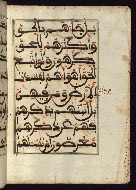 بل جاءهم بالحق
وأكثرهم للحق
كرهون ولو اتبع
الحق أهواءهم لفسدت
السموت والأرض
ومن فيهن بل
أتينهم بذكرهم
فهم عن ذكرهم
معرضون أم تسئلهم